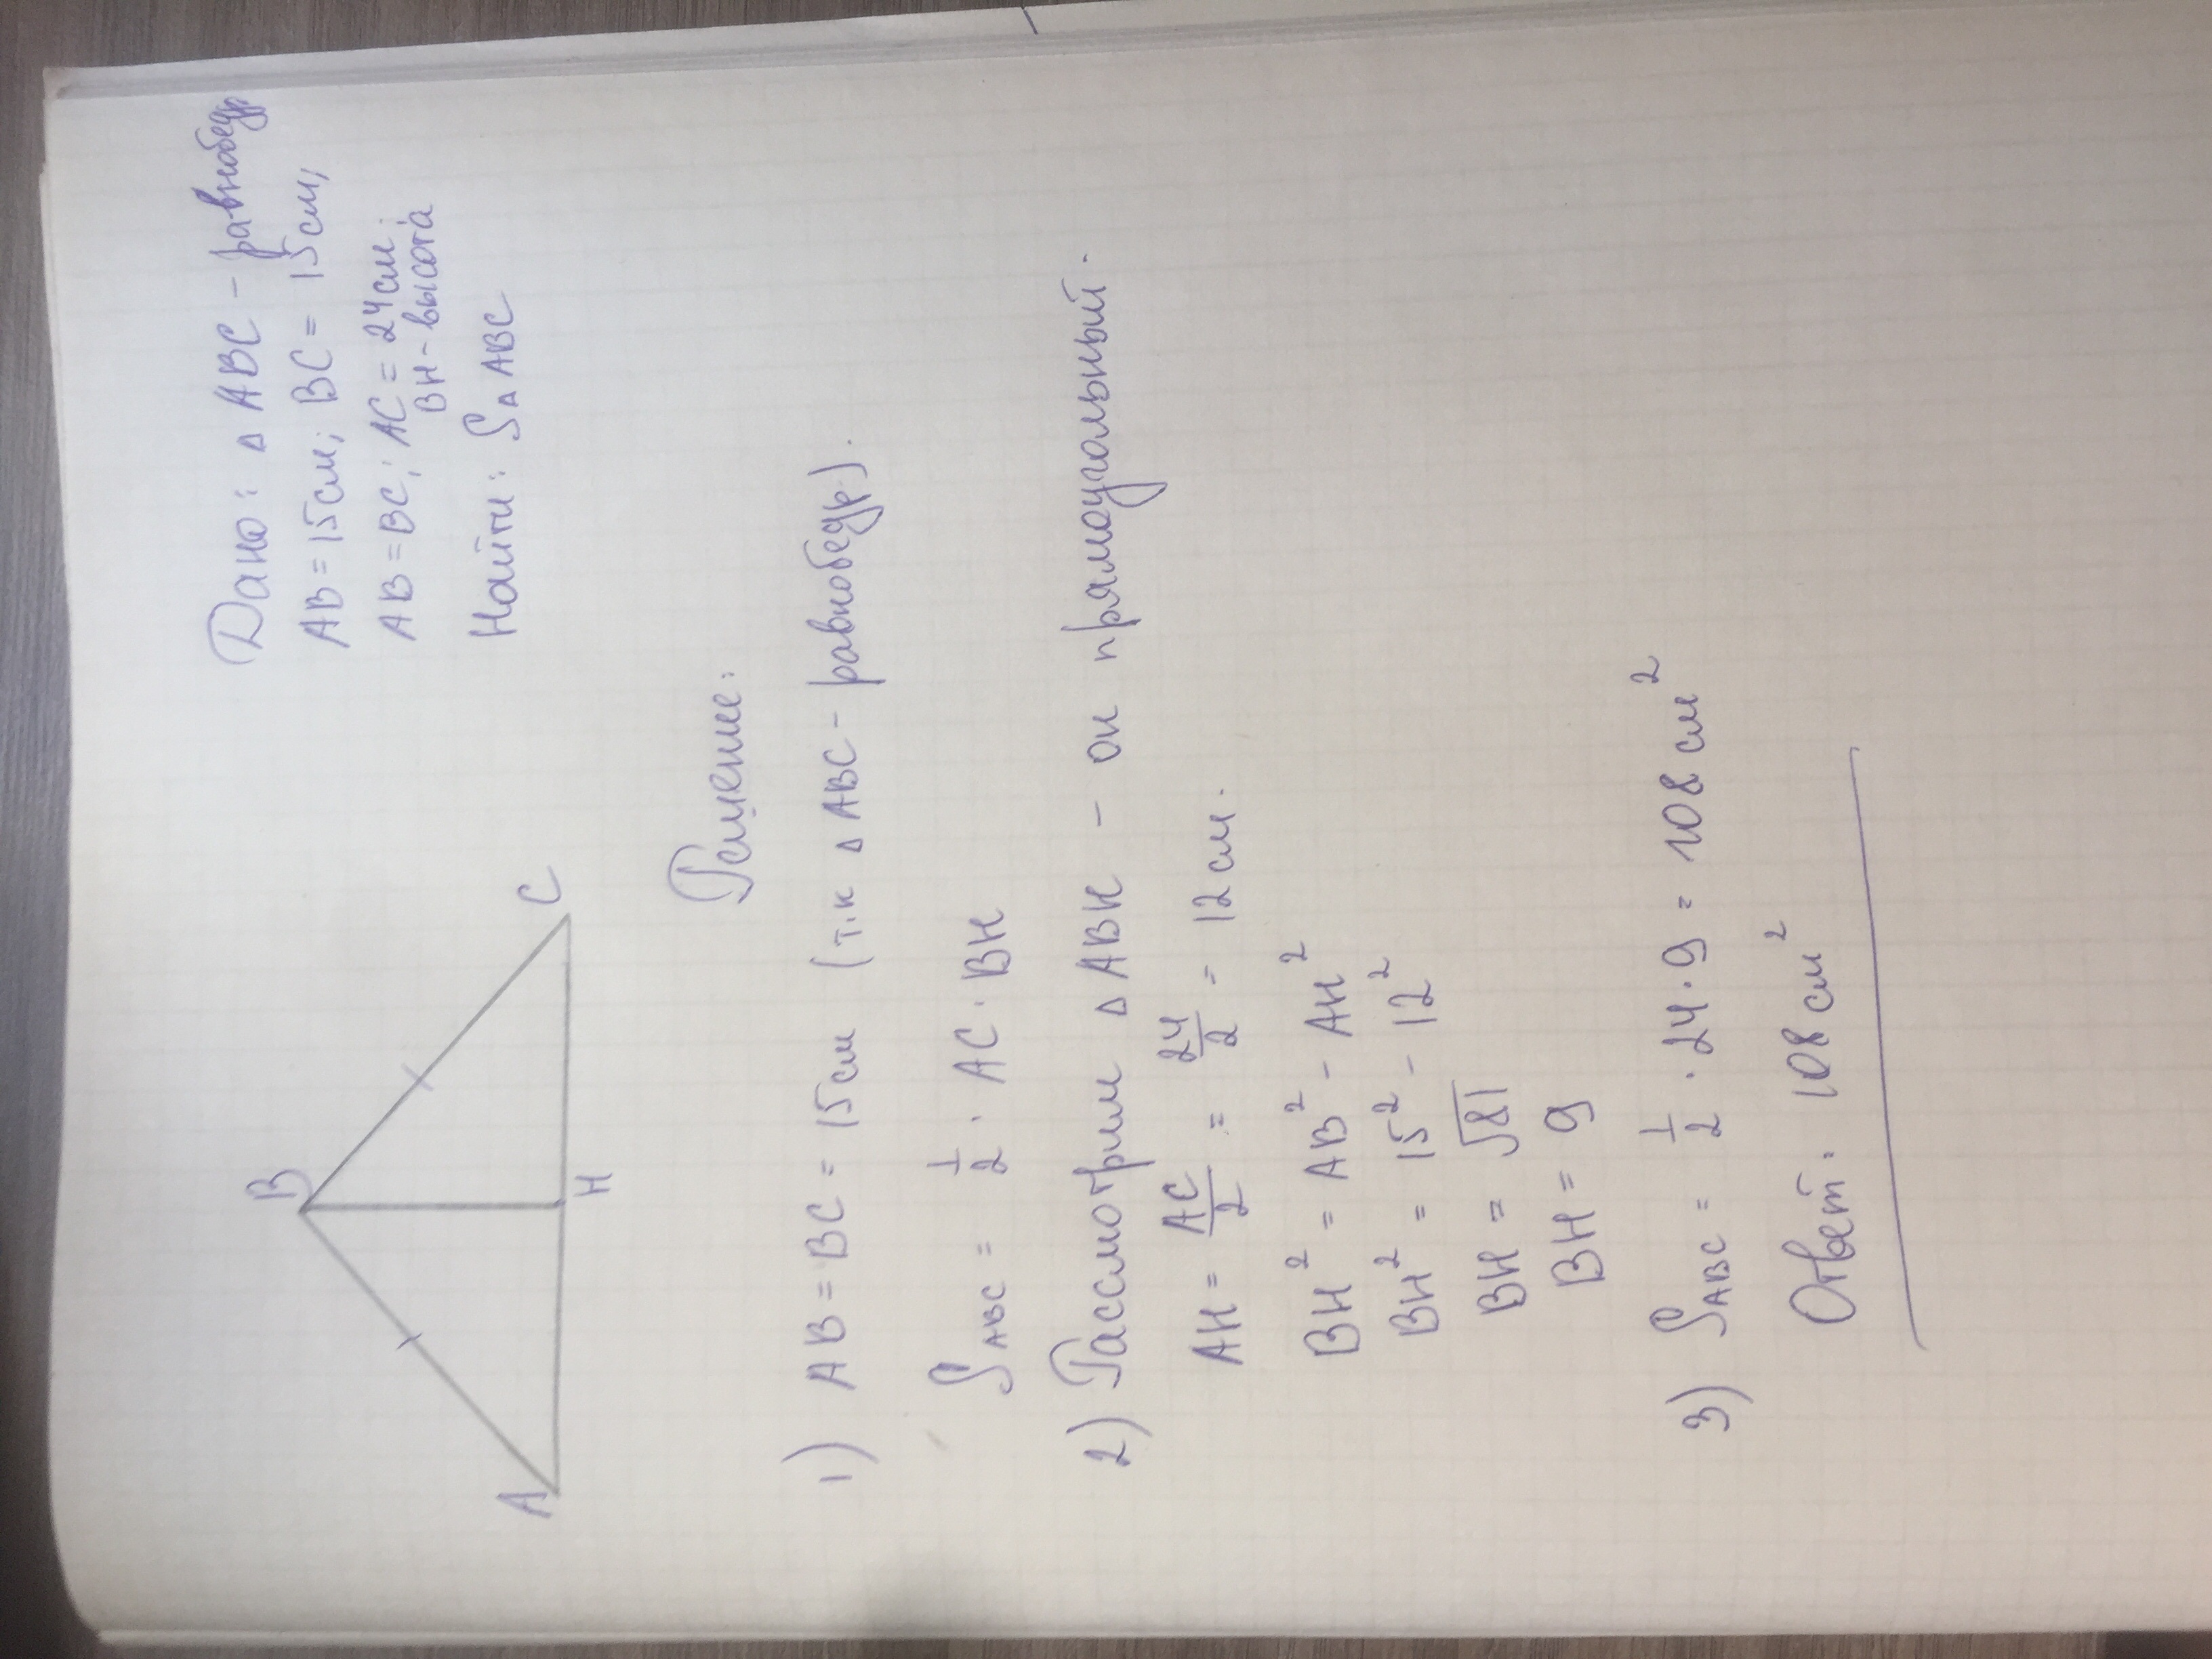 B
A
H
C
Дано: Δ ABC - равнобедр
AB = 15 см; BC = 15 см;
AB = BC; AC = 24 см.
BH - высота
Найти: S Δ ABC
Решение:
1) AB = BC = 15 см (т.к Δ ABC - равнобедр).
S ABC = 1/2 · AC · BH
2) Рассмотрим Δ ABH - он прямоугольный.
AH = AC/2 = 24/2 = 12 см.
BH² = AB² - AH²
BH² = 15² - 12²
BH = √81
BH = 9
3) S ABC = 1/2 · 24 · 9 = 108 см²
Ответ: 108 см²